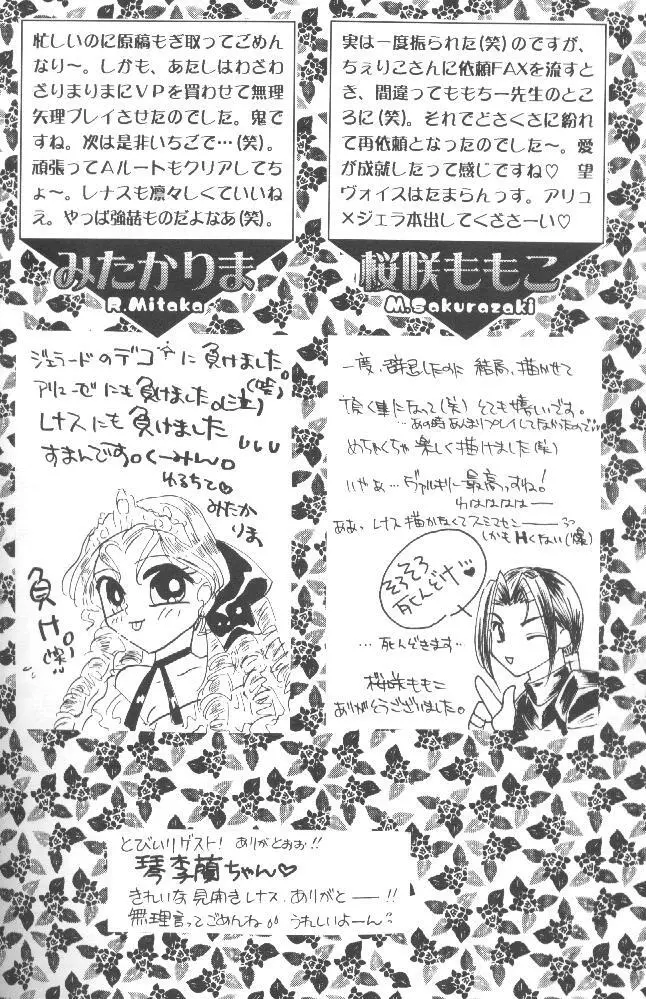 忙しいのに原稿もぎ取ってごめん
なり〜。しかも、あたしはわざわ
ざまりまりにVPを買わせて無理
矢理プレイさせたのでした。鬼で
すね。次は是非いちごで…(笑)。
頑張ってAルートもクリアしてち
ょ〜。レナスも凛々しくていいね
ぇ。やっぱ強喆ものだよなあ(笑)。
みたかりま
R.Mitaka
ジェラードのデコに負けました。(嘘)
アリューゼにも負けました。(泣)
レナスにも負けました
すまんです。くーみん。
ゆるちて♡
みたか
りま
負け。
(爆)
実は一度振られた(笑)のですが、
ちぇりこさんに依頼FAXを流すと
き、間違ってももちー先生のとこ
ろに(笑)。それでどさくさに紛れ
て再依頼となったのでした〜。愛
が成就したって感じですね♡ 望
ヴォイスはたまらんっす。アリュ
×ジェラ本出してくださーい♡
桜咲ももこ
M.Sakurazaki
一度、辞退したのに 結局、描かせて
頂く事になって(笑) とても嬉しいです。
…あの時あんまりプレイしてなかったので…
めちゃくちゃ楽しく描けました(笑)
いやぁ…ヴァルキリに最高っすね!
わははははー
ああ、レナス描かなくてスミマセンーー
しかもHくない(爆)
そろそろ
死んどけ…♥
…死んどきます…
桜咲ももこ
ありがとうございました。
とびいりゲスト! ありがとおお!!
琴李蘭ちゃん♡
きれいな見開きレナス、ありがとーー!!
無理言ってごめんね うれしいよーん